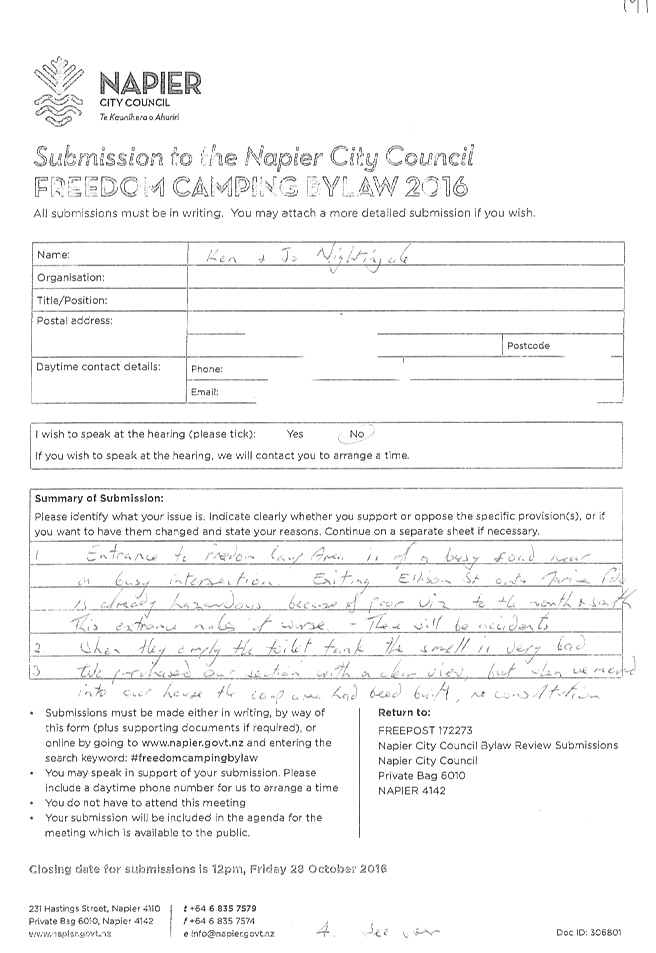 NAPIER
CITY COUNCIL
Te Kaunihera o Ahuriri
Submission to the Napier City Council
FREEDOM CAMPING BYLAW 2016
All submissions must be in writing. You may attach a more detailed submission if you wish.
Name: Ken & Jo Nightingale
Organisation:
Title/Position:
Postal address:
Postcode
Daytime contact details: Phone:
Email:
I wish to speak at the hearing (please tick): Yes No
If you wish to speak at the hearing, we will contact you to arrange a time.
Summary of Submission:
Please identify what your issue is. Indicate clearly whether you support or oppose the specific provision(s), or if
you want to have them changed and state your reasons. Continue on a separate sheet if necessary.
1 Entrance to Freedom Camp Area is of a busy road near
a busy intersection. Exiting Ellison St onto Marine Pde
is already hazardous because of poor viz to the north & south
This entrance makes it worse. - There will be accidents
2. When they empty the toilet tank the smell is very bad
3 We purchased our section with a clear view, but when we moved
into our house the camp area had beed built, no consultation
• Submissions must be made either in writing, by way of
this form (plus supporting documents if required), or
online by going to www.napier.govt.nz and entering the
search keyword: #freedomcampingbylaw
• You may speak in support of your submission. Please
include a daytime phone number for us to arrange a time
• You do not have to attend this meeting
• Your submission will be included in the agenda for the
meeting which is available to the public.
Return to:
FREEPOST 172273
Napier City Council Bylaw Review Submissions
Napier City Council
Private Bag 6010
NAPIER 4142
Closing date for submissions is 12pm, Friday 28 October 2016
231 Hastings Street, Napier 4110
Private Bag 6010, Napier 4142
www.napier.govt.nz
t +64 6 835 7579
f +64 6 835 7574
e info@napier.govt.nz
4. See
Doc ID: 306801